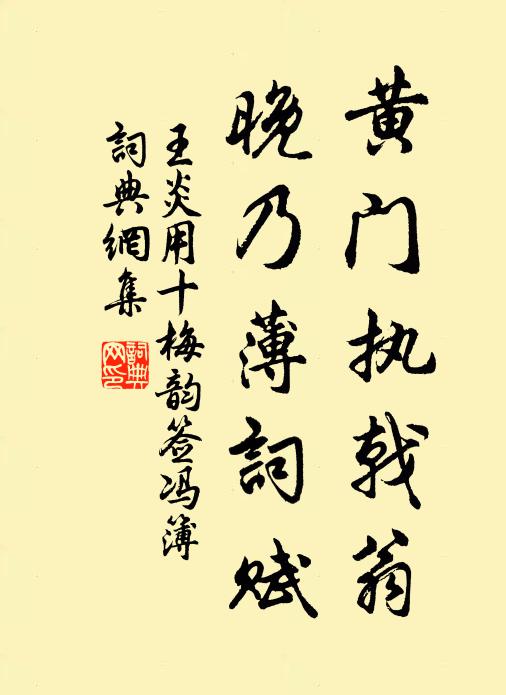 黄门执戟翁
晚乃薄詞赋
王炎用十梅韵签冯簿
詞典網集
詞典网印